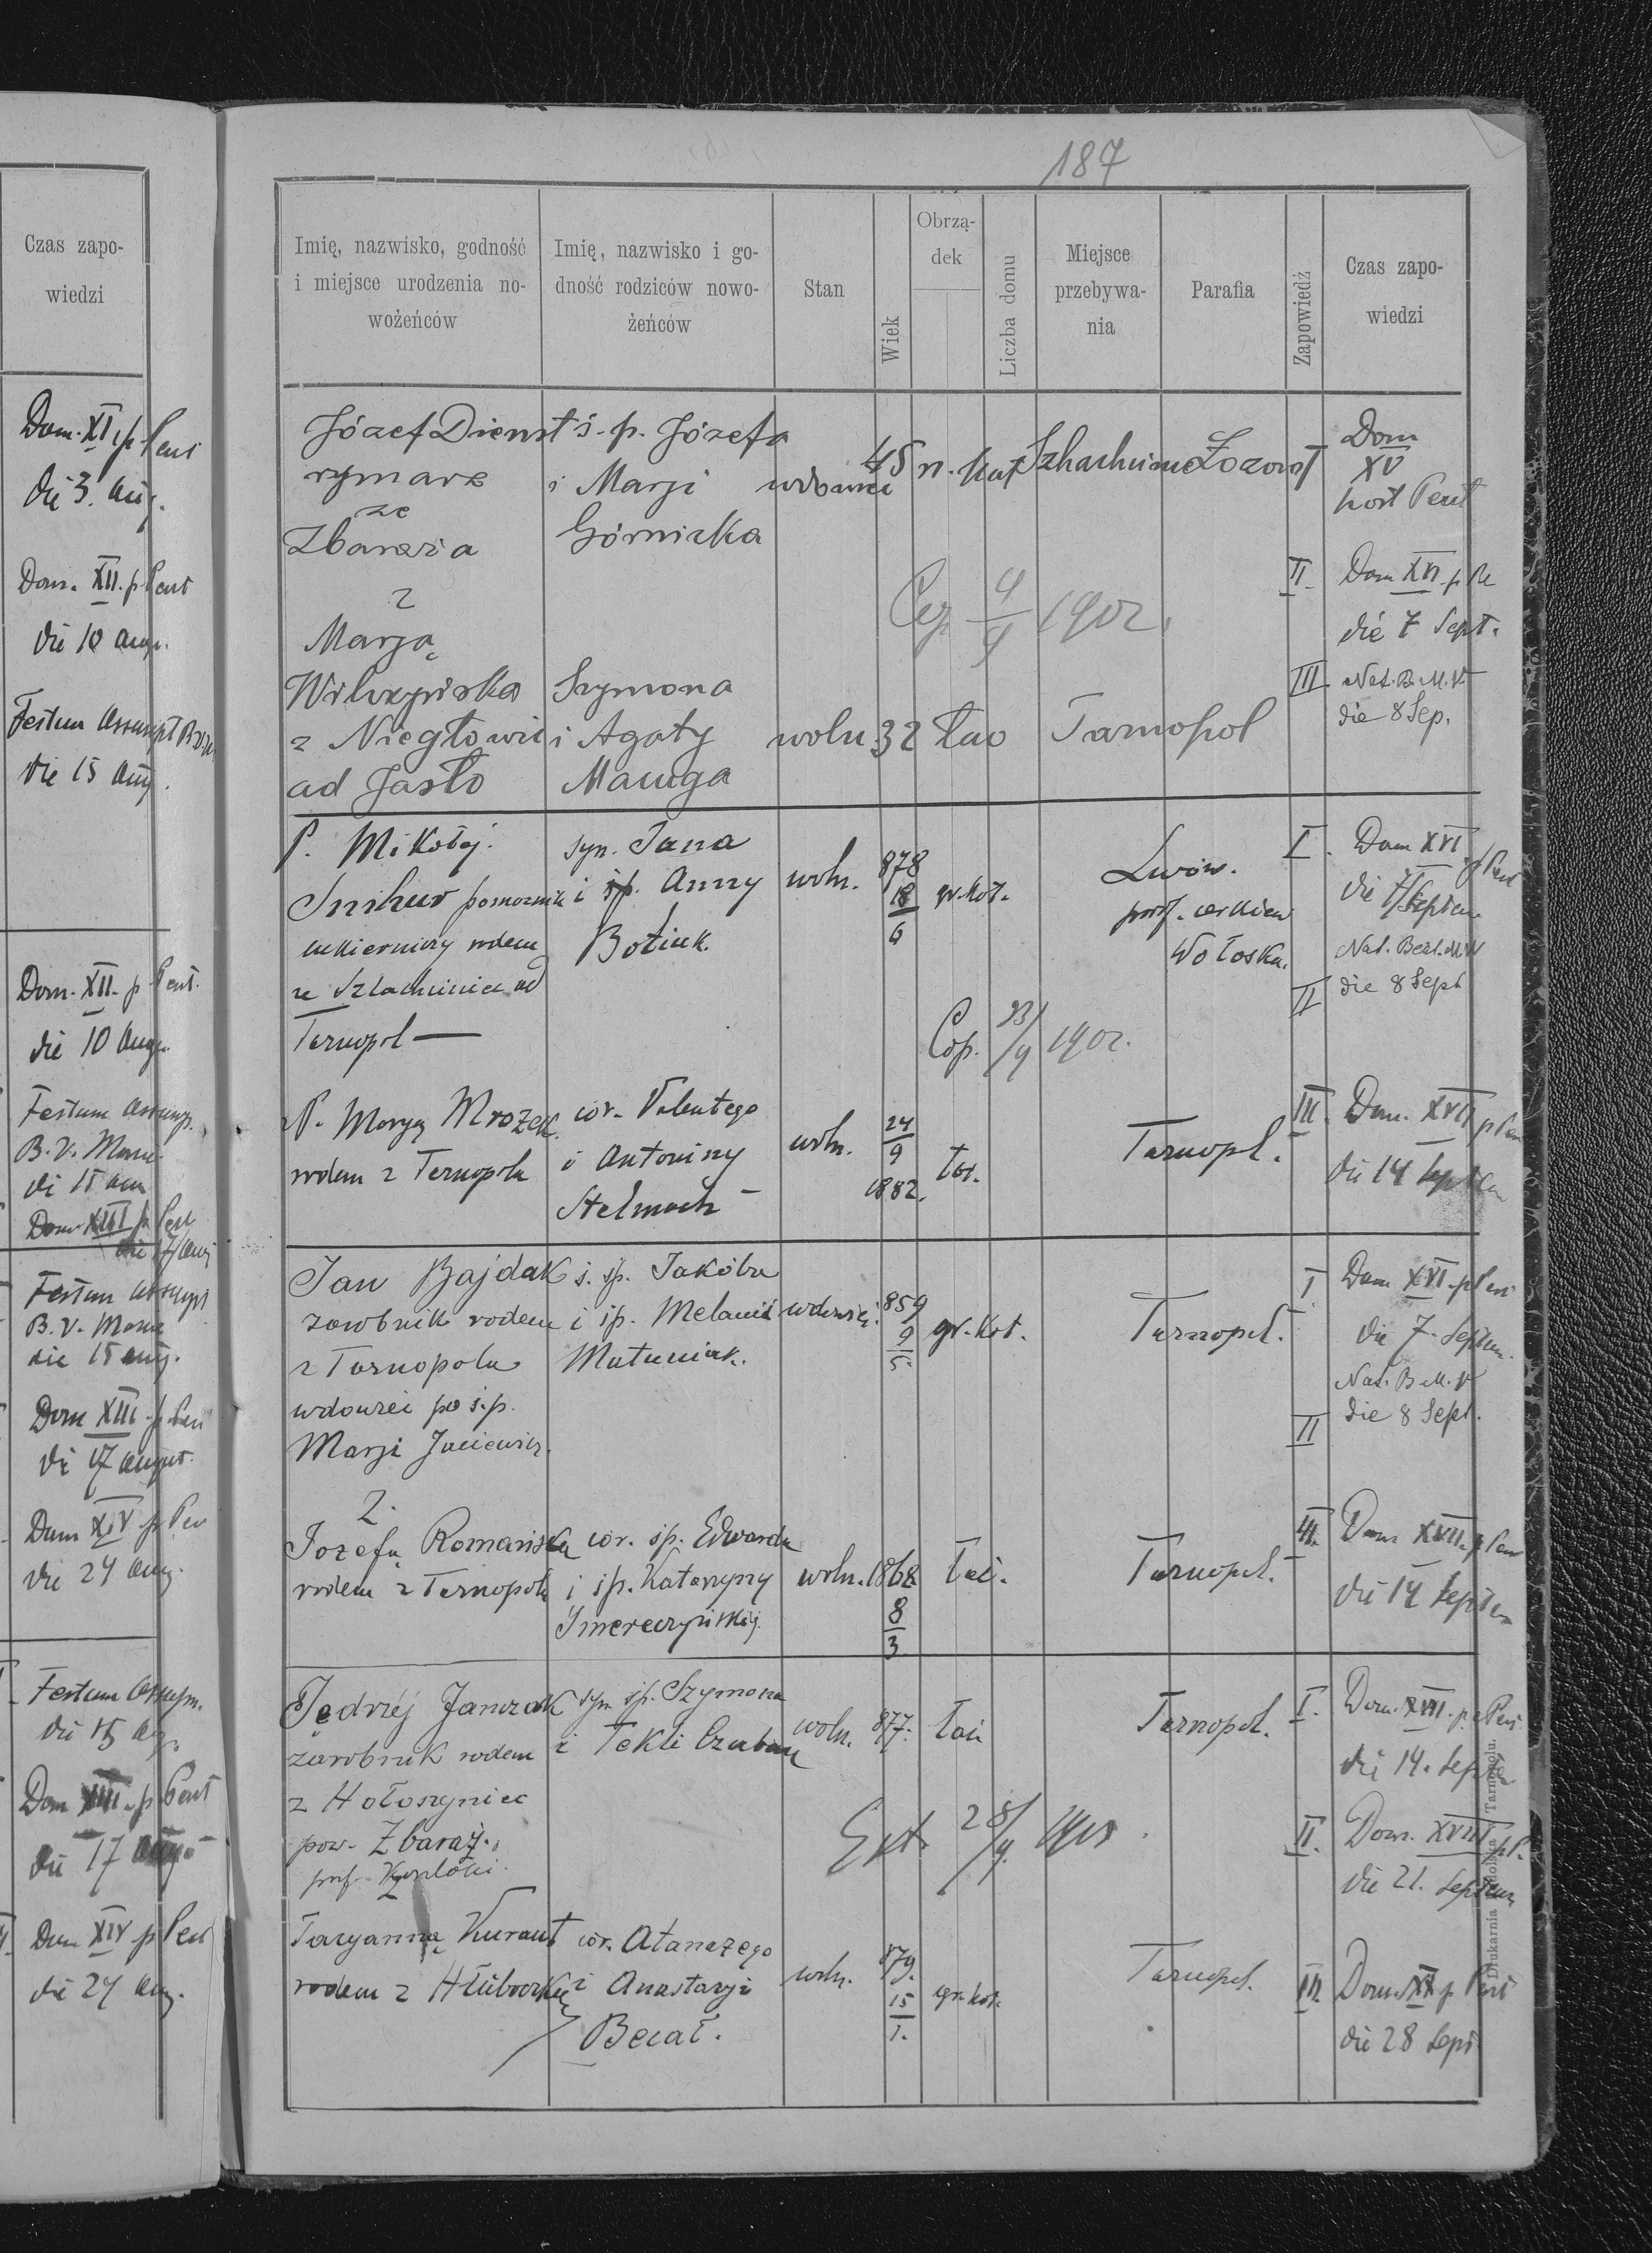 187
Czas zapo-
wiedzi
Dom. XI p. Pent
die 3. Aug.
Dom. XII. p. Pent
die 10 aug.
Festum Assumpt B.V.M.
die 15 Aug.
Dom. XII. p Pent.
die 10 Aug.
Festum Assump.
B.V. Mariae
die 15 aug
Dom XIII p Pent
die 17 Aug
Festum Assumpt
B.V. Mariae
die 15 aug.
Dom XIII. p. Pent
die 17 august.
Dom XIV p Pen
die 24 Aug.
Festum Assupm.
die 15 ag.
Dom XIII. p. Pent
die 17 Aug
Dom XIV p Pent
die 24 Aug.
Imię, nazwisko, godność
i miejsce urodzenia no-
wożeńców
Imię, nazwisko i go-
dność rodziców nowo-
żeńców
Stan
Wiek
Obrzą-
dek
Liczba domu
Miejsce
przebywa-
nia
Parafia
Zapowiedź
Czas zapo-
wiedzi
Józef Dienst ś.p. Józefa
rymarz i Marji 45 r. kat
ze
Zbaraża Górnicka
Dom
XV
post Pent
z
Marją
Szymona
z Niegłowic i Agaty woln 32 łac Tarnopol
ad Jasło
4/9 1902.
II. Dom XVI p. Pe
die 7 Sept.
III Nat. B. M. V.
die 8 Sep.
P. Mikołaj syn. Jana woln. 878 18/6 gr. kat. Lwów.
pomocnik i śp. Anny
cukierniczy rodem
Tarnopol
paraf. cerkiew
Wołoska.
I. Dom XVI p Pent
die 7 Septem
Nat. Beat. M. V
II die 8 Sept
Cop. 23/9 1902.
P. Maryą Mrozek cór. Walentego woln. 24/9 1882. łac. Tarnopol.
rodem z Tarnopola i Antoniny
Stelmach
III. Dom. XVII p Pen
die 14 Septem
Jan Bajdak s. śp. Jakóba
zarobnik rodem i śp. Melanii wdowiec. 859 9/5. gr. kat. Tarnopol.
z Tarnopola Matuniak.
wdowiec po ś.p.
Marji
I Dom XVI. p Pen
die 7. Septem.
Nat. B M. V
II die 8 Sept.
Z.
Józefą Romańską cór. śp. Edwarda
rodem z Tarnopola i śp. Katarzyny woln. 1868 8/3 łać. Tarnopol.
III. Dom XVII p Pen
die 14 Septem
Jędrzej Janczak syn śp. Szymona
zarobnik rodem i Tekli woln. 877. łać Tarnopol.
z Hołoszyniec
pow. Zbaraż.
I. Dom. XVII. p. Pen
die 14. Septem
28/9
II. Dom. XVIII p P.
die 21. Septem
Z
Taryanną Kurant cór. Atanazego
rodem z i Anastazji woln. 879. 15/1. gr. kat. Tarnopol.
Becał.
III. Dom. XIX p. Pent
die 28 Sept
Drukarnia Podolska w Tarnopolu.